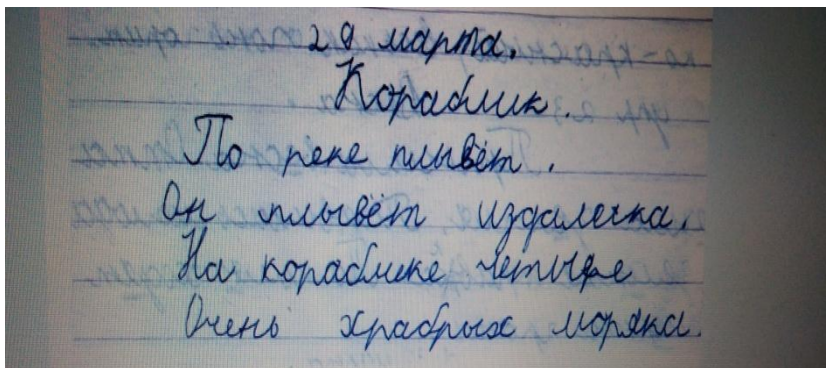 29 марта.
Кораблик.
По реке плывёт.
Он плывёт издалечка.
На кораблике четыре
Очень храбрых моряка.